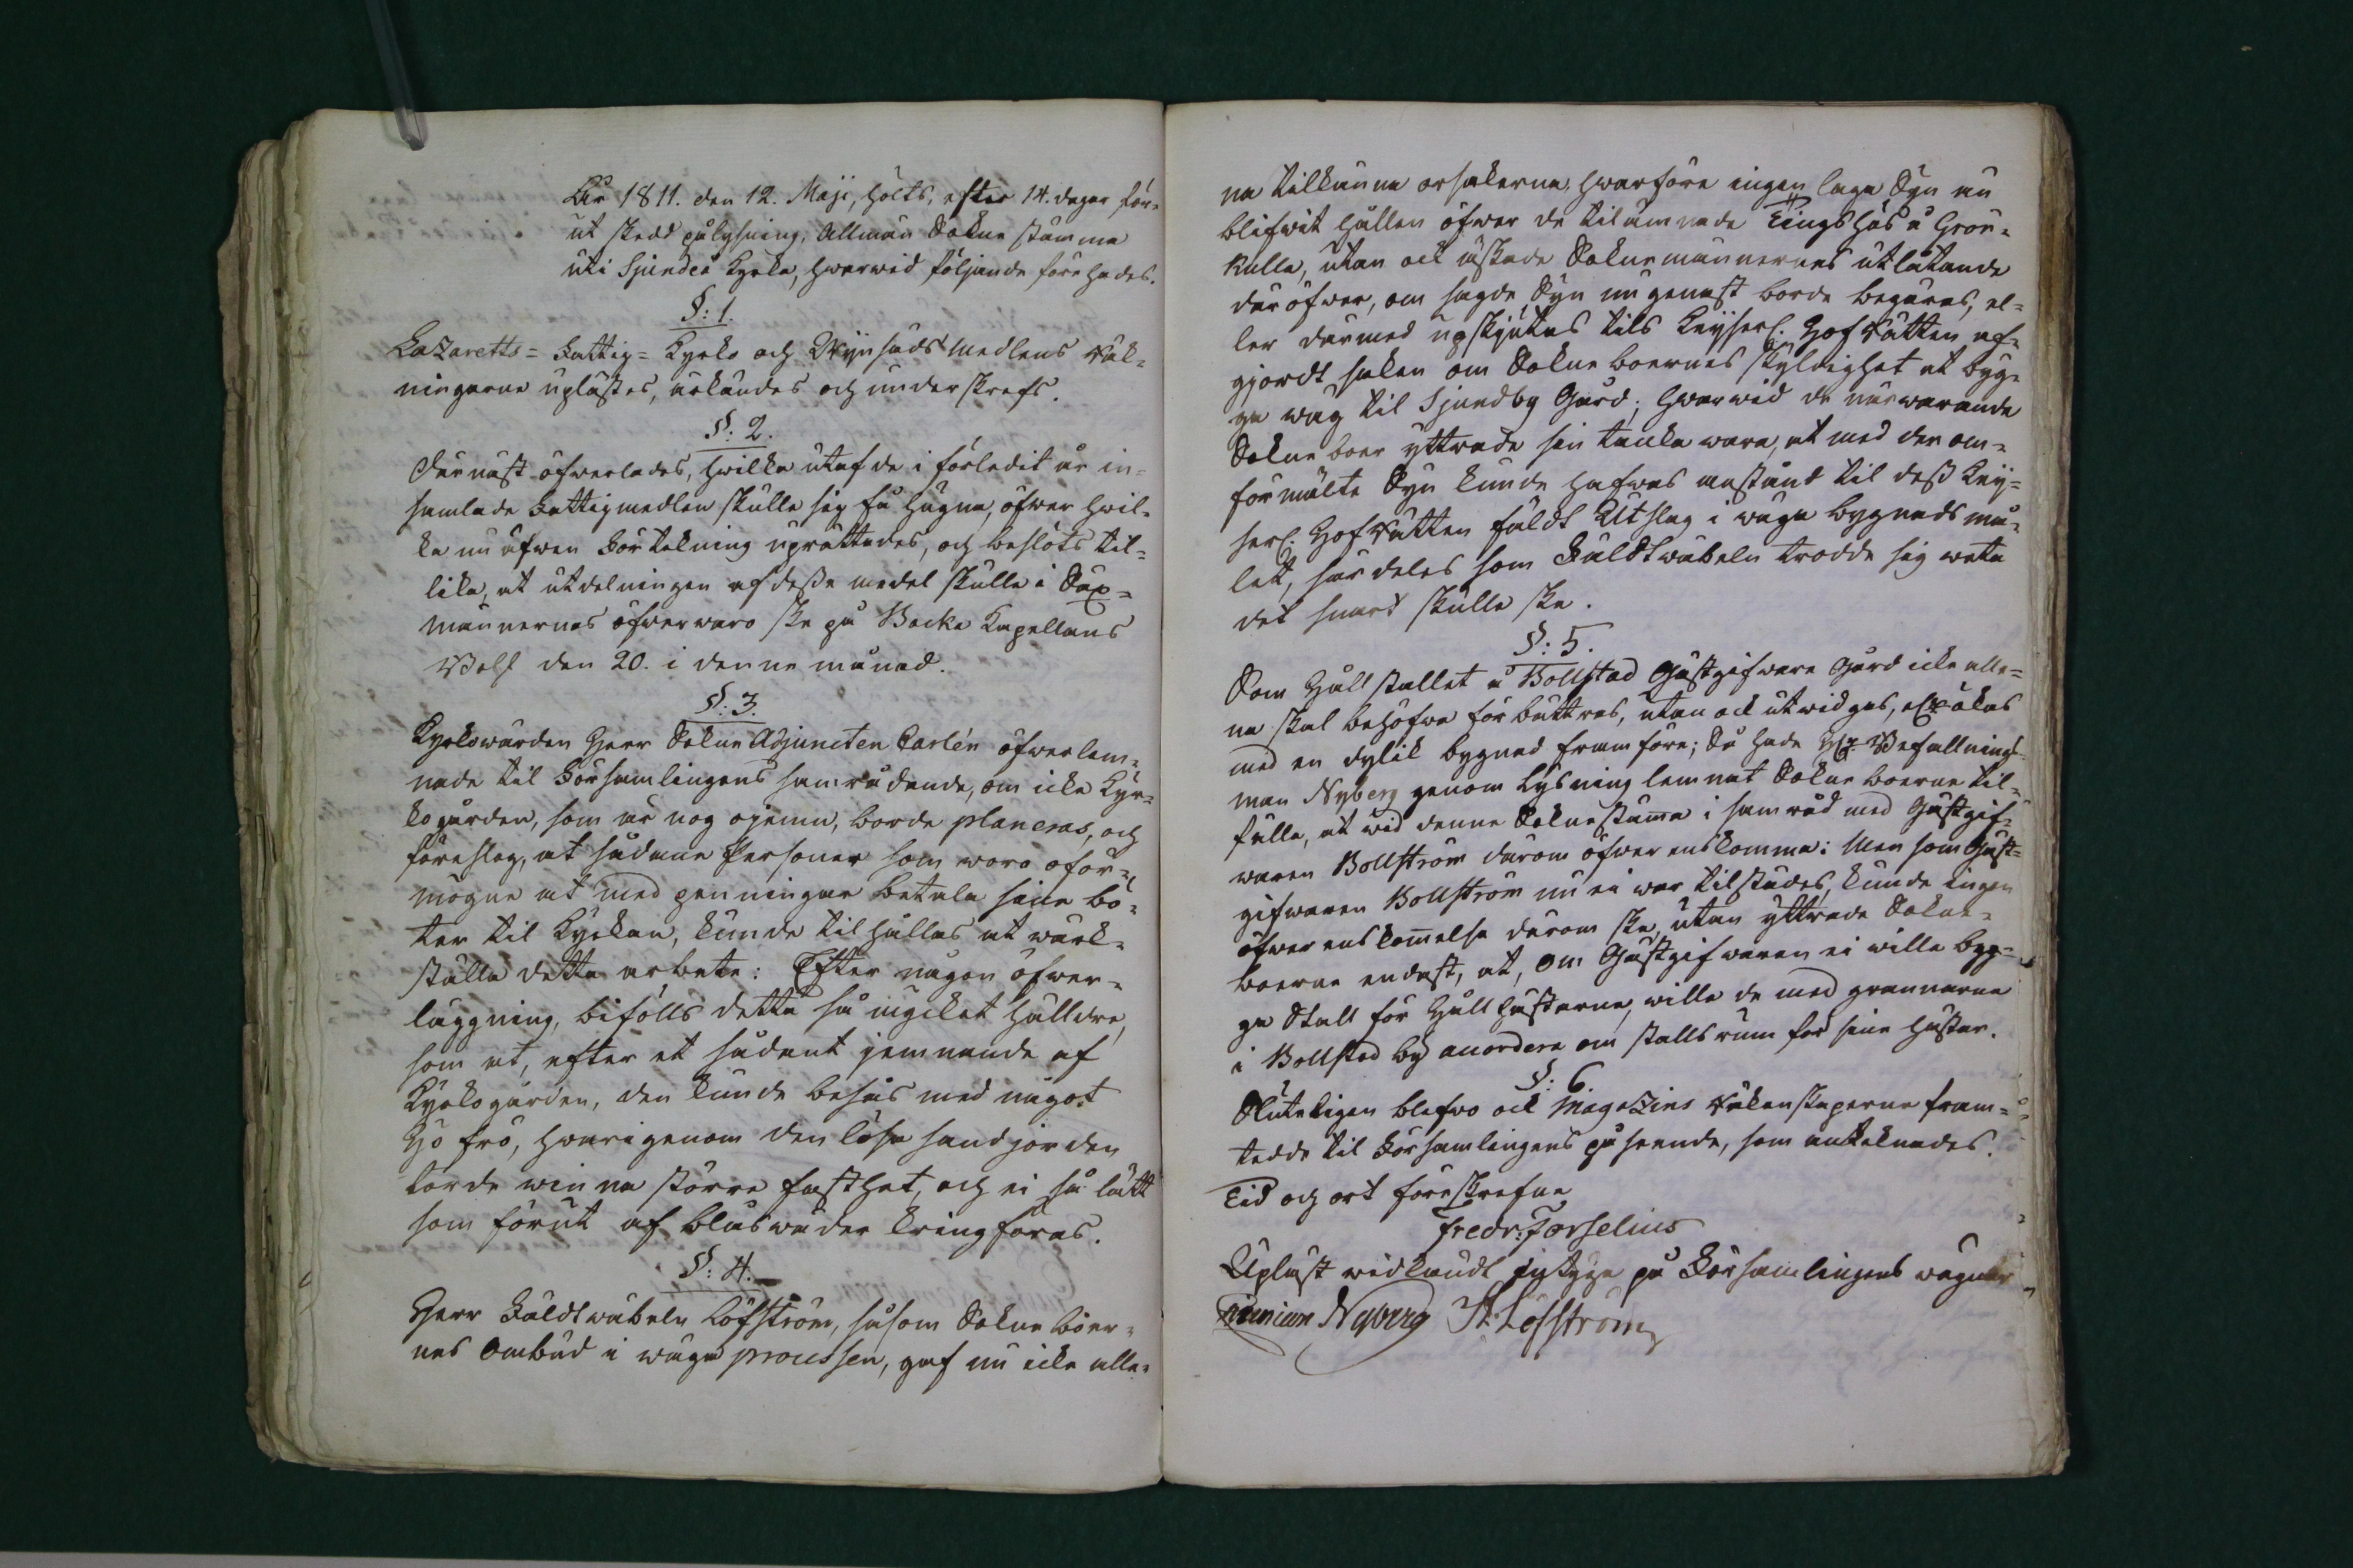 År 1811. den 12. Maji, hölts, efter 14. dagar för-
ut skedd pålysning, Allmän Sokne stämma
uti Sjundeå Kyrka, hwarwid följande förehades.
§: 1.
Lazaretts= Fattig= Kyrko och Wijnsädsmedlens Räk-
ningarne uplästes, erkändes och underskrefs.
§: 2.
Därnäst öfwerlades, hwilka utaf de i förledit år in-
samlade Fattigmedlen skulle sig få hugna, öfwer hwil-
ka nu äfwen Förtekning uprättades, och beslöts til-
lika, at utdelningen af desse medel skulle i Sex-
männernes öfwerwaro ske på Backa Kapellans
Bohl den 20. i denne månad.
§: 3.
Kyrkowärden Herr Sokne Adjuncten Carlén öfwerlem-
nade til Församlingens samrådande, om icke Kyr-
kogården, som är nog ojemn, borde planeras, och
föreslog, at sådane Personer som woro oför-
mögne at med penningar betala sine bö-
ter til Kyrkan, kunde tilhållas at wärk-
ställa detta arbete: Efter någon öfwer-
läggning, bifölls detta så mycket hälldre,
som at, efter et sådant jemnande af
Kyrkogården, den kunde besås med något
Hö frö, hwarigenom den lösa sandjorden
torde winna större fasthet, och ei så lätt
som förut af blåswäder kringföras.
§: 4.
Herr Fäldtwäbeln Löfström, såsom Sokneboer-
nes Ombud i wäga processen, gaf nu icke alle-
na tilkänna orsakerne, hwarföre ingen laga Syn nu
blifwit hållen öfwer de tilämnade Tingshus å Grön-
kulla, utan ock äskade Soknemännernes utlåtande
däröfwer, om sagde Syn nu genast borde begäras, el-
ler därmed upskjutas tils Keyserl. HofRätten af-
gjordt saken om Sokneboernes skyldighet at byg-
ga wäg til Sjundby Gård; hwarwid de närwarande
Sokneboer yttrade sin tanka wara, at med den om-
förmälte Syn kunde hafwas anstånd til dess Key-
serl. HofRätten fäldt Utslag i wäga bygnads må-
let, särdeles som Fäldtwäbeln trodde sig weta
det snart skulle ske.
§: 5.
Som Hållstallet å Bollstad Gästgifware Gård icke alle-
na skal behöfwa förbättras, utan ock utwidgas, eller ökas
med en dylik bygnad framföre; Så hade Hr. Befallnings-
man Nyberg genom Lysning lemnat Sokneboerne til-
fälle, at wid denne Soknestäma i samråd med Gästgif-
waren Bollström därom öfwerenskomma: Men som Gäst-
gifwaren Bollström nu ei war tilstädes, kunde ingen
öfwerenskommelse därom ske, utan yttrade Sokne-
boerne endast, at, om Gästgifwaren ei wille byg-
ga Stall för Hållhästarne, wille de med grannarne
i Bollstad by anordere om stallsrum för sine hästar.
§: 6.
Sluteligen blefwo ock Magazins Räkenskaperne fram-
tedde til Församlingens påseende, som anteknades.
Tid och ort föreskrefne
Fredr: Forselius
Upläst widkändt intyga på Församlingens wägnar
Nyberg H. Löfström